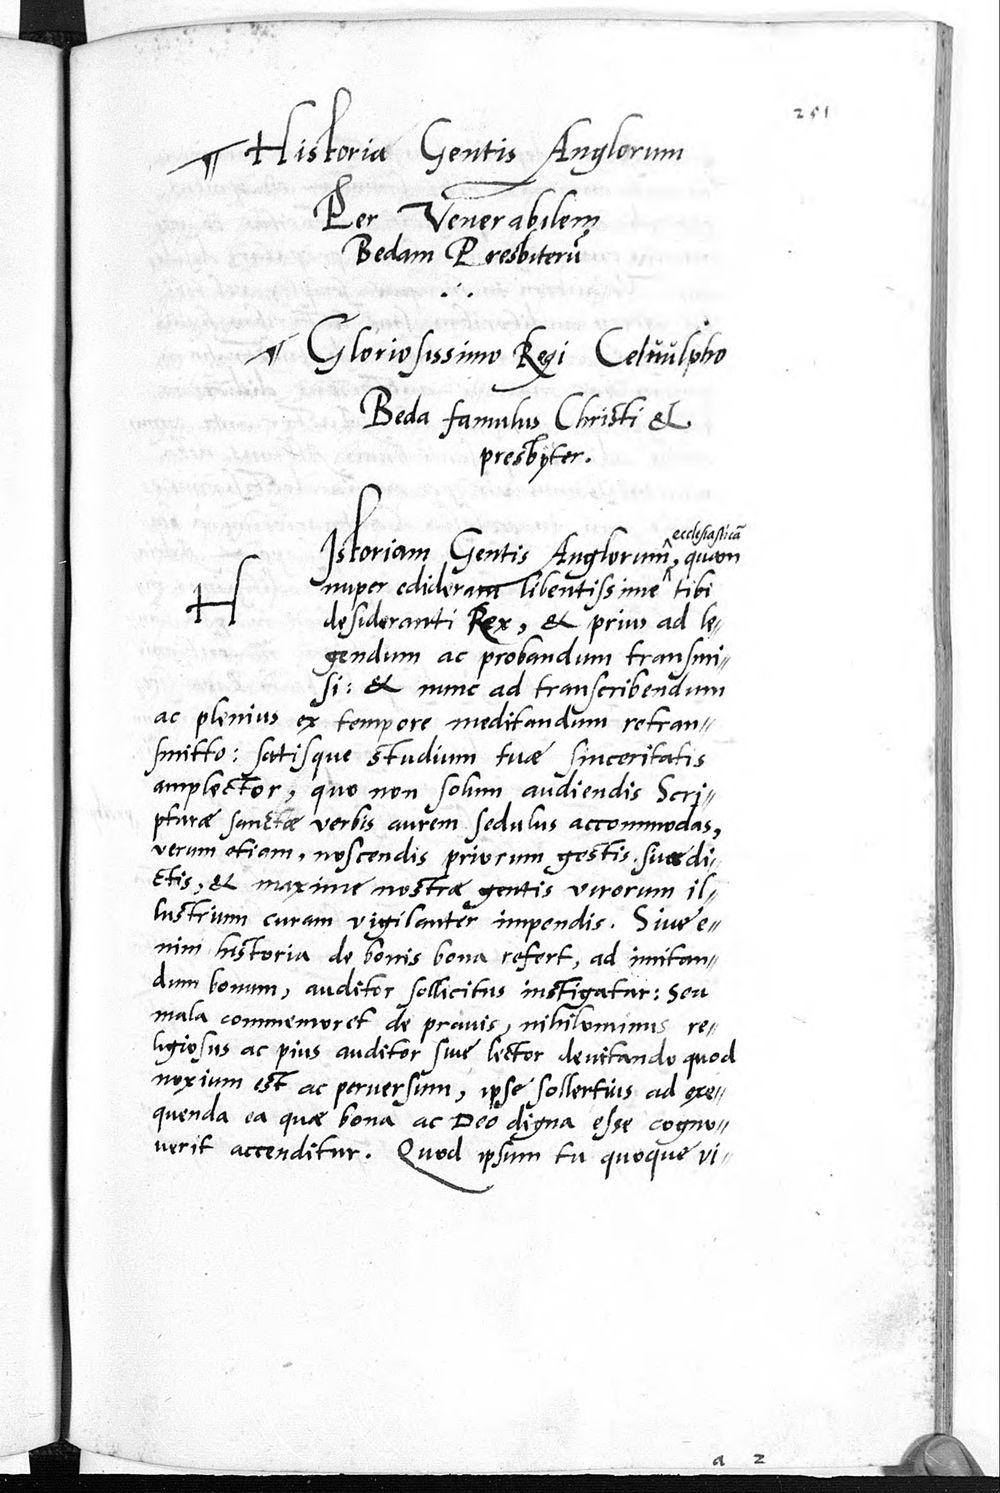 251
¶ Historia Gentis Anglorum
Per Venerabilem
Bedam Presbiterū
¶ Gloriosissimo Regi Celuulpho
Beda famulus Christi &
presbyter.
ecclesiasticā
H Istoriam Gentis Anglorum, quam
nuper edideram libentissime tibi
desideranti Rex, & prius ad le〃
gendum ac probandum transmi〃
si: & nunc ad transcribendum
ac plenius ex tempore meditandum retran〃
smitto: satisque studium tuæ sinceritatis
amplector, quo non solum audiendis Scri〃
pturæ sanctæ verbis aurem sedulus accommodas,
verum etiam, noscendis priorum gestis sive di〃
ctis, & maxime nostræ gentis virorum il〃
lustrium curam vigilanter impendis. Sive e〃
nim historia de bonis bona refert, ad imitan〃
dum bonum, auditor sollicitus instigatur: Seu
mala commemoret de pravis, nihilominus re〃
ligiosus ac pius auditor sive lector devitando quod
noxium est ac perversum, ipse sollertius ad exe〃
quenda ea quæ bona ac Deo digna esse cogno〃
verit accenditur. Quod ipsum tu quoque vi〃
a 2